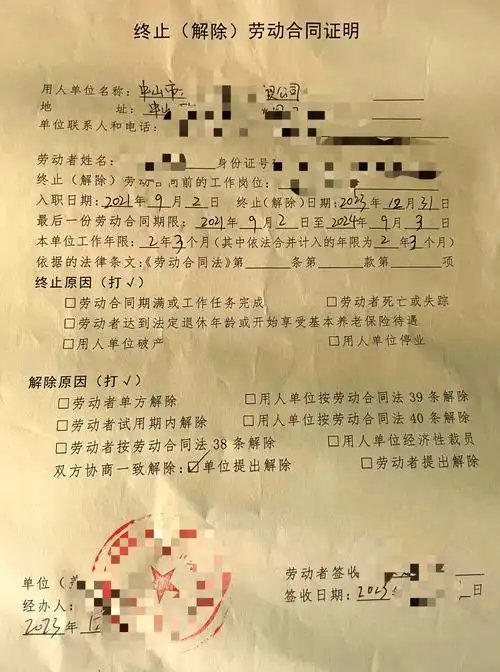 终止（解除）劳动合同证明
用人单位名称：中山市 贸公司
地 址：中山
单位联系人和电话：
劳动者姓名： 身份证号
终止（解除）劳动合同前的工作岗位：
入职日期：2021年9月2日 终止(解除)日期：2023年12月31日
最后一份劳动合同期限：2021年9月2日至2024年9月3日
本单位工作年限：2年3个月(其中依法合并计入的年限为2年3个月)
依据的法律条文：《劳动合同法》第 条第 款第 项
终止原因（打√）
□劳动合同期满或工作任务完成 □劳动者死亡或失踪
□劳动者达到法定退休年龄或开始享受基本养老保险待遇
□用人单位破产 □用人单位停业
解除原因（打√）
□劳动者单方解除 □用人单位按劳动合同法39条解除
□劳动者试用期内解除 □用人单位按劳动合同法40条解除
□劳动者按劳动合同法38条解除 □用人单位经济性裁员
双方协商一致解除：☑单位提出解除 □劳动者提出解除
单位（盖 劳动者签收
经办人： 签收日期：2023 日
2023年12